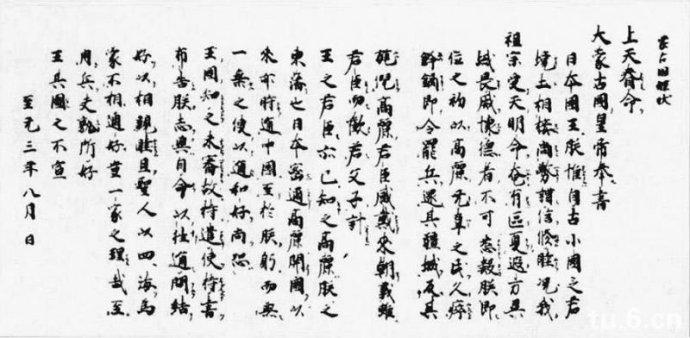 蒙古國牒状
上天眷命
大蒙古國皇帝奉書
日本國王朕惟自古小國之君
境土相接尚務講信修睦況我
祖宗受天明命奄有區夏遐方異
域畏威懷德者不可悉數朕即
位之初以高麗无辜之民久瘁
鋒鏑即令罷兵還其疆域反其
旄倪高麗君臣感戴來朝義雖
君臣而歡若父子計
王之君臣亦已知之高麗朕之
東藩也日本密邇高麗開國以
來亦時通中國至於朕躬而無
一乘之使以通和好尚恐
王國知之未審故特遣使持書
布告朕志冀自今以往通問結
好以相親睦且聖人以四海為
家不相通好豈一家之理哉至
用兵夫孰所好
王其圖之不宣
至元三年八月日
tu.6.cn